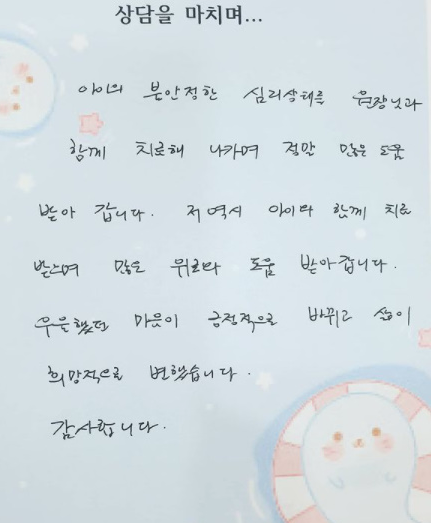 상담을 마치며...
아이의 불안정한 심리상태를 원장님과
함께 치료해 나가며 정말 많은 도움
받아 갑니다. 저 역시 아이와 함께 치료
받으며 많은 위로와 도움 받아갑니다.
우울했던 마음이 긍정적으로 바뀌고 삶이
희망적으로 변했습니다.
감사합니다.